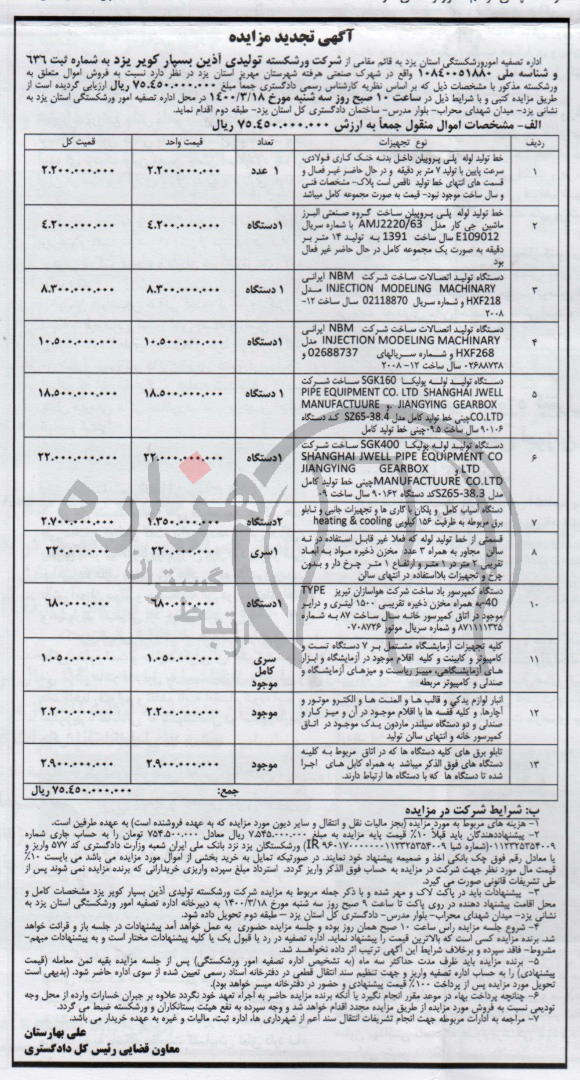 آگهی تجدید مزایده
اداره تصفیه امورورشکستگی استان یزد به قائم مقامی از شرکت ورشکسته تولیدی آذین بسپار کویر یزد به شماره ثبت ۶۳۶
و شناسه ملی ۱۰۸۴۰۰۵۱۸۸۰ واقع در شهرک صنعتی هرفته شهرستان مهریز استان یزد در نظر دارد نسبت به فروش اموال متعلق به
ورشکسته مذکور با مشخصات ذیل که بر اساس نظریه کارشناس رسمی دادگستری جمعاً مبلغ ۷۵.۴۵۰.۰۰۰.۰۰۰ ریال ارزیابی گردیده است از
طریق مزایده کتبی و با شرایط ذیل در ساعت ۱۰ صبح روز سه شنبه مورخ ۱۴۰۰/۳/۱۸ در محل اداره تصفیه امور ورشکستگی استان یزد به
نشانی یزد- میدان شهدای محراب- بلوار مدرس- ساختمان دادگستری کل استان یزد- طبقه دوم اقدام نماید.
الف- مشخصات اموال منقول جمعاً به ارزش ۷۵.۴۵۰.۰۰۰.۰۰۰ ریال
ردیف نوع تجهیزات تعداد قیمت واحد قمیت کل
۱ خط تولید لوله پلی پروپیلن داخل بدنه خنک کاری فولادی، ۱ عدد ۲.۲۰۰.۰۰۰.۰۰۰ ۲.۲۰۰.۰۰۰.۰۰۰
سرعت پایین با تولید ۷ متر بر دقیقه و در حال حاضر غیر فعال و
قسمت های انتهای خط تولید ناقص است پلاک- مشخصات فنی
و سال ساخت موجود نبود- قیمت به صورت مجموعه کامل میباشد
۲ خط تولید لوله پلی پروپیلن ساخت گروه صنعتی البرز ۱دستگاه ۴.۲۰۰.۰۰۰.۰۰۰ ۴.۲۰۰.۰۰۰.۰۰۰
ماشین جی کار مدل AMJ2220/63 با شماره سریال
E109012 سال ساخت 1391 به تولید ۱۴ متر بر
دقیقه به صورت یک مجموعه کامل در حال حاضر غیر فعال
بود
۳ دستگاه تولید اتصالات ساخت شرکت NBM ایرانی ۱ دستگاه ۸.۳۰۰.۰۰۰.۰۰۰ ۸.۳۰۰.۰۰۰.۰۰۰
INJECTION MODELING MACHINARY مدل
HXF218 و شماره سریال 02118870 سال ساخت ۱۲-
۲۰۰۸
۴ دستگاه تولید اتصالات ساخت شرکت NBM ایرانی ۱دستگاه ۱۰.۵۰۰.۰۰۰.۰۰۰ ۱۰.۵۰۰.۰۰۰.۰۰۰
INJECTION MODELING MACHINARY مدل
HXF268 و شماره سریالهای 02688737 و
۰۲۶۸۸۷۳۸ سال ساخت ۱۲- ۲۰۰۸
۵ دستگاه تولید لوله پولیکا SGK160 ساخت شرکت ۱ دستگاه ۱۸.۵۰۰.۰۰۰.۰۰۰ ۱۸.۵۰۰.۰۰۰.۰۰۰
PIPE EQUIPMENT CO. LTD SHANGHAI JWELL
MANUFACTUURE و JIANGYING GEARBOX
CO.LTDچینی خط تولید کامل مدل SZ65-38.4 کد دستگاه
۹۰۱۰۶ سال ساخت ۰۹.۵چینی خط تولید کامل
۶ دستگاه تولید لوله پولیکا SGK400 ساخت شرکت ۱دستگاه ۲۲.۰۰۰.۰۰۰.۰۰۰ ۲۲.۰۰۰.۰۰۰.۰۰۰
SHANGHAI JWELL PIPE EQUIPMENT CO
JIANGYING GEARBOX و LTD
MANUFACTUURE CO.LTDچینی خط تولید کامل
مدل SZ65-38.3کد دستگاه ۹۰۱۶۲ سال ساخت ۰۹
۷ دستگاه آسیاب کامل و پلکان با گاری ها و تجهیزات جانبی و تابلو ۲دستگاه ۱.۳۵۰.۰۰۰.۰۰۰ ۲.۷۰۰.۰۰۰.۰۰۰
برق مربوطه به ظرفیت ۱۵۶ کیلویی heating & cooling
۸ قسمتی از خط تولید لوله که فعلا غیر قابل استفاده در ته ۱سری ۲۲۰.۰۰۰.۰۰۰ ۲۲۰.۰۰۰.۰۰۰
سالن مجاور به همراه ۳ عدد مخزن ذخیره مواد به ابعاد
تقریبی ۲ متر در ۱ متر و ارتفاع ۱ متر چرخ دار و بدون
چرخ و تجهیزات بلااستفاده در انتهای سالن
۱۰ دستگاه کمپرسور باد ساخت شرکت هواسازان تبریز TYPE ۱دستگاه ۶۸۰.۰۰۰.۰۰۰ ۶۸۰.۰۰۰.۰۰۰
40-به همراه مخزن ذخیره تقریبی ۱۵۰۰ لیتری و درایر
موجود در اتاق کمپرسور خانه سال ساخت ۸۷ به شماره
۸۷۱۱۱۱۳۲۵ و شماره سریال موتور ۰۷۰۸۷۲۶
۱۱ کلیه تجهیزات آزمایشگاه مشتمل بر ۷ دستگاه تست و سری ۱.۰۵۰.۰۰۰.۰۰۰ ۱.۰۵۰.۰۰۰.۰۰۰
کامپیوتر و کابینت و کلیه اقلام موجود در آزمایشگاه و ابزار کامل
های آزمایشگاهی، میز ریاست و میزهای آزمایشگاه و موجود
صندلی و کامپیوتر مربطه
۱۲ انبار لوازم یدکی و قالب ها و المنت ها و الکترو موتور و موجود ۲.۲۰۰.۰۰۰.۰۰۰ ۲.۲۰۰.۰۰۰.۰۰۰
آچارها، و کلیه قفسه ها با اقلام موجود در آن و میز کار و
صندلی و دو دستگاه سیلندر ماردون یدک موجود در اتاق
کمپرسور خانه و انتهای سالن تولید
۱۳ تابلو برق های کلیه دستگاه ها که در اتاق مربوط به کلیه موجود ۲.۹۰۰.۰۰۰.۰۰۰ ۲.۹۰۰.۰۰۰.۰۰۰
دستگاه های فوق الذکر میباشد به همراه کابل های اجرا
شده تا دستگاه ها که با دستگاه ها ارتباط دارند.
جمع: ۷۵.۴۵۰.۰۰۰.۰۰۰ ریال
ب: شرایط شرکت در مزایده
۱- هزینه های مربوط به مورد مزایده (بجز مالیات نقل و انتقال و سایر دیون مورد مزایده که به عهده فروشنده است) به عهده طرفین است.
۲- پیشنهاددهندگان باید قبلاً ۱۰٪ قیمت پایه مزایده به مبلغ ۷.۵۴۵.۰۰۰.۰۰۰ ریال معادل ۷۵۴.۵۰۰.۰۰۰ تومان را به حساب جاری شماره
۰۱۱۲۳۲۵۳۵۴۰۰۹ (شماره شبا IR ۹۶۰۱۷۰۰۰۰۰۰۰۱۱۲۳۲۵۳۵۴۰۰۹) ورشکستگان یزد نزد بانک ملی ایران شعبه وزارت دادگستری کد ۵۷۷ واریز و
یا معادل رقم فوق چک بانکی اخذ و ضمیمه پیشنهاد خود نمایند. در صورتیکه تمایل به خرید بخشی از اموال مورد مزایده می باشد می بایست ۱۰٪
قیمت مال مورد نظر جهت شرکت در مزایده به حساب فوق الذکر واریز گردد. استرداد مبلغ سپرده واریزی خریدارانی که برنده مزایده نمی شوند پس از
طی تشریفات قانونی صورت می گیرد.
۳- پیشنهادات باید در پاکت لاک و مهر شده و با ذکر جمله مربوط به مزایده شرکت ورشکسته تولیدی آذین بسپار کویر یزد مشخصات کامل و
محل اقامت پیشنهاد دهنده در روی پاکت تا ساعت ۹ صبح روز سه شنبه مورخ ۱۴۰۰/۳/۱۸ به دبیرخانه اداره تصفیه امور ورشکستگی استان یزد به
نشانی یزد- میدان شهدای محراب- بلوار مدرس- دادگستری کل استان یزد – طبقه دوم تحویل داده شود.
۴- شروع جلسه مزایده راس ساعت ۱۰ صبح همان روز بوده و جلسه مزایده حضوری به عمل خواهد آمد پیشنهادات در جلسه باز و قرائت خواهد
شد. برنده مزایده کسی است که بالاترین قیمت را پیشنهاد نماید. اداره تصفیه در رد یا قبول یک یا کلیه پیشنهادات مختار است و به پیشنهادات مبهم-
مشروط- فاقد سپرده و برخلاف شرایط این آگهی ترتیب اثر داده نخواهد شد.
۵- برنده مزایده باید ظرف مدت حداکثر سه ماه (به تشخیص اداره تصفیه امور ورشکستگی) پس از جلسه مزایده بقیه ثمن معامله (قیمت
پیشنهادی) را به حساب اداره تصفیه واریز و جهت تنظیم سند انتقال قطعی در دفترخانه اسناد رسمی تعیین شده از سوی اداره حاضر شود. (بدیهی است
تحویل مورد مزایده پس از پرداخت ۱۰۰٪ قیمت پیشنهادی و حضور در دفترخانه میسر خواهد بود).
۶- چنانچه پرداخت بهاء در موعد مقرر انجام نگیرد یا آنکه برنده مزایده حاضر به اجراء تعهد خود نگردد علاوه بر جبران خسارات وارده از محل وجه
تودیعی نسبت به فروش مورد مزایده از طریق مزایده مجدد اقدام خواهد شد و وجه سپرده به نفع هیئت بستانکاران و ورشکسته ضبط می گردد.
۷- مراجعه به ادارات مربوطه جهت انجام تشریفات انتقال سند اعم از شهرداری ها، اداره ثبت، مالیات و غیره به عهده خریدار می باشد.
علی بهارستان
معاون قضایی رئیس کل دادگستری
هزاره
گستران
ارتباط